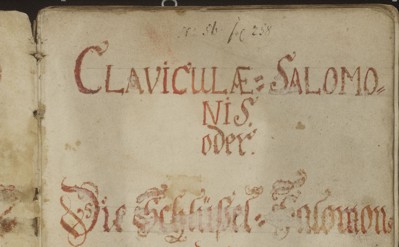 CLAVICULÆ=SALOMO=
NIS.
oder.
Die Schlüßel=Salomon